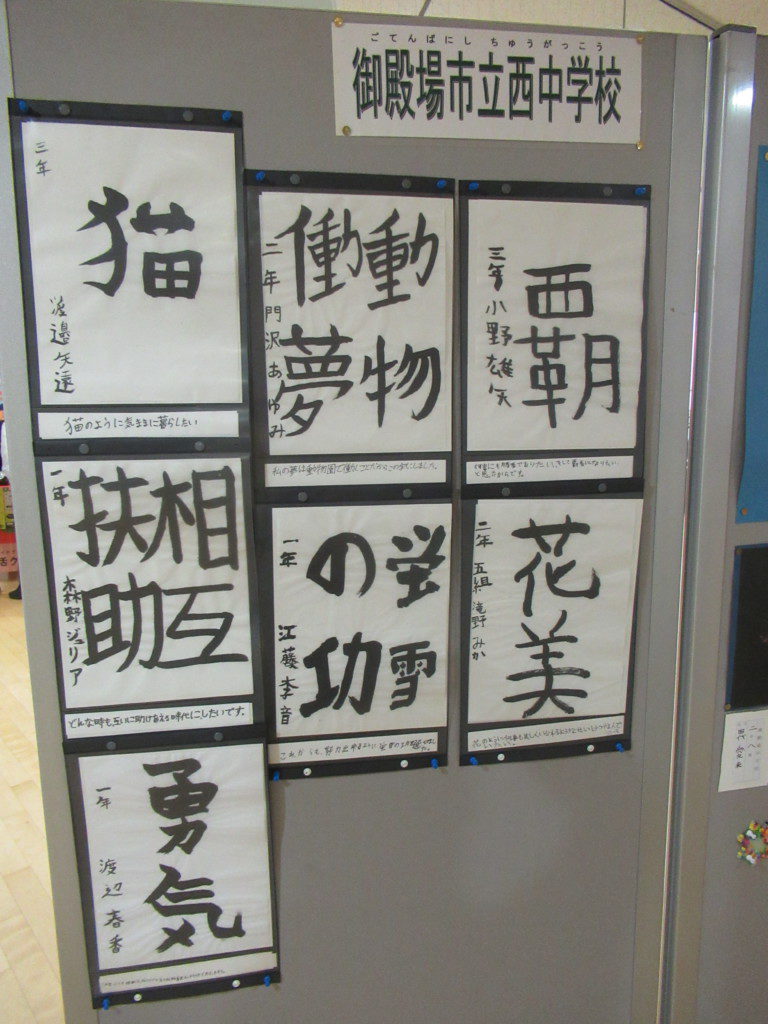 ごてんばにし ちゅうがっこう
御殿場市立西中学校
猫
三年
渡邉矢遠
猫のように気ままに暮らしたい
動物
働夢
二年門沢あゆみ
私の夢は動物園で働くことだからこの字にしました。
覇
三年小野雄矢
相互
扶助
一年
森野ジュリア
どんな時も互いに助けあえる時代にしたいです。
蛍雪
の功
一年
江藤李音
花美
二年五組滝野みか
勇気
一年
渡辺春香